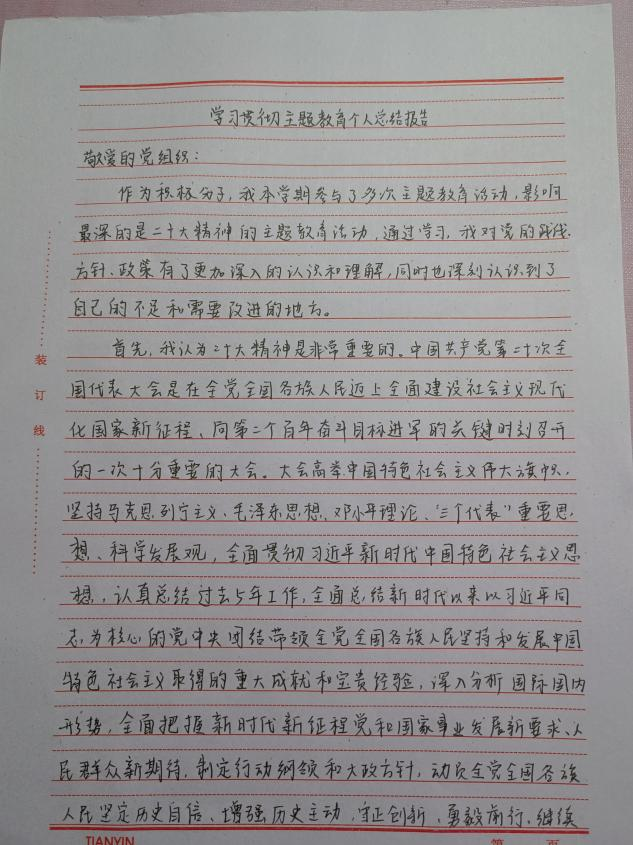 学习贯彻主题教育个人总结报告
敬爱的党组织：
作为积极分子，我本学期参与了多次主题教育活动，影响
最深的是二十大精神的主题教育活动，通过学习，我对党的路线、
方针、政策有了更加深入的认识和理解，同时也深刻认识到了
自己的不足和需要改进的地方。
首先，我认为二十大精神是非常重要的。中国共产党第二十次全
国代表大会是在全党全国各族人民迈上全面建设社会主义现代
化国家新征程、向第二个百年奋斗目标进军的关键时刻召开
的一次十分重要的大会。大会高举中国特色社会主义伟大旗帜，
坚持马克思列宁主义、毛泽东思想、邓小平理论、“三个代表”重要思
想、科学发展观，全面贯彻习近平新时代中国特色社会主义思
想，认真总结过去5年工作，全面总结新时代以来以习近平同
志为核心的党中央团结带领全党全国各族人民坚持和发展中国
特色社会主义取得的重大成就和宝贵经验，深入分析国际国内
形势，全面把握新时代新征程党和国家事业发展新要求、人
民群众新期待，制定行动纲领和大政方针，动员全党全国各族
人民坚定历史自信、增强历史主动，守正创新、勇毅前行，继续
装
订
线
TIANYIN
第 页